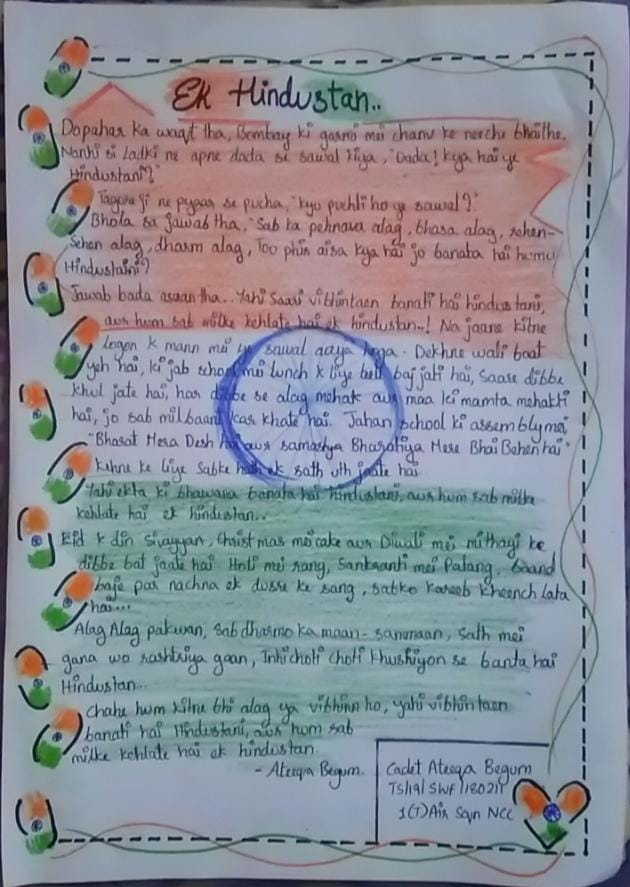 Ek Hindustan..
Dopahar ka waqt tha, Bombay ki garmi mei chanv ke neeche bhaithe,
Nanhi si ladki ne apne dada se sawal kiya, "Dada! Kya hai ye
Hindustani?"
Tagore ji ne pyaar se pucha, "kyu puchli ho ye sawal?"
Bhola sa jawab tha, "Sab ka pehnava alag, bhasa alag, rehen-
Sehen alag, dharm alag, Too phir aisa kya hai jo banata hai humu
Hindustaini?
Jawab bada asaan tha.. Yahi Saari vibhintaen banati hai hindustani,
aur hum sab milke kehlate hai ek hindustan..! Na jaane kitne
logon k mann mei ye sawal aaya hoga. Dekhne wali baat
yeh hai, ki jab school mei lunch k liye bell baj jati hai, Saare dibbe
khul jate hai, har dibbe se alag mehak aur maa ki mamta mehakti
hai, jo sab milbaant kar khate hai. Jahan school ki assembly mei
"Bharat Mera Desh hai aur samastya Bharatiya Mere Bhai Behen hai"
Kehne ke liye sabke hath ek sath uth jaate hai
Yahi ekta ki bhawana banata hai hindustani, aur hum sab milke
kehlate hai ek hindustan..
Eid k din Sivayyan, Christmas mei cake aur Diwali mei mithayi ke
dibbe bat jaate hai Holi mei rang, Sankranti mei Patang, Baand
baje par nachna ek dusre ke sang, sabko kareeb kheench lata
hai...
Alag Alag pakwan, Sab dharmo ka maan-sammaan, Sath mei
gana wo rashtriya gaan, Inhi choti choti khushiyon se banta hai
Hindustan...
Chahe hum kitne bhi alag ya vibhinn ho, yahi vibhintaen
banati hai Hindustani, aur hum sab
milke kehlate hai ek hindustan.
- Ateeqa Begum.
Cadet Ateeqa Begum
TS/19/SWF/180211
1(T) Air Sqn NCC